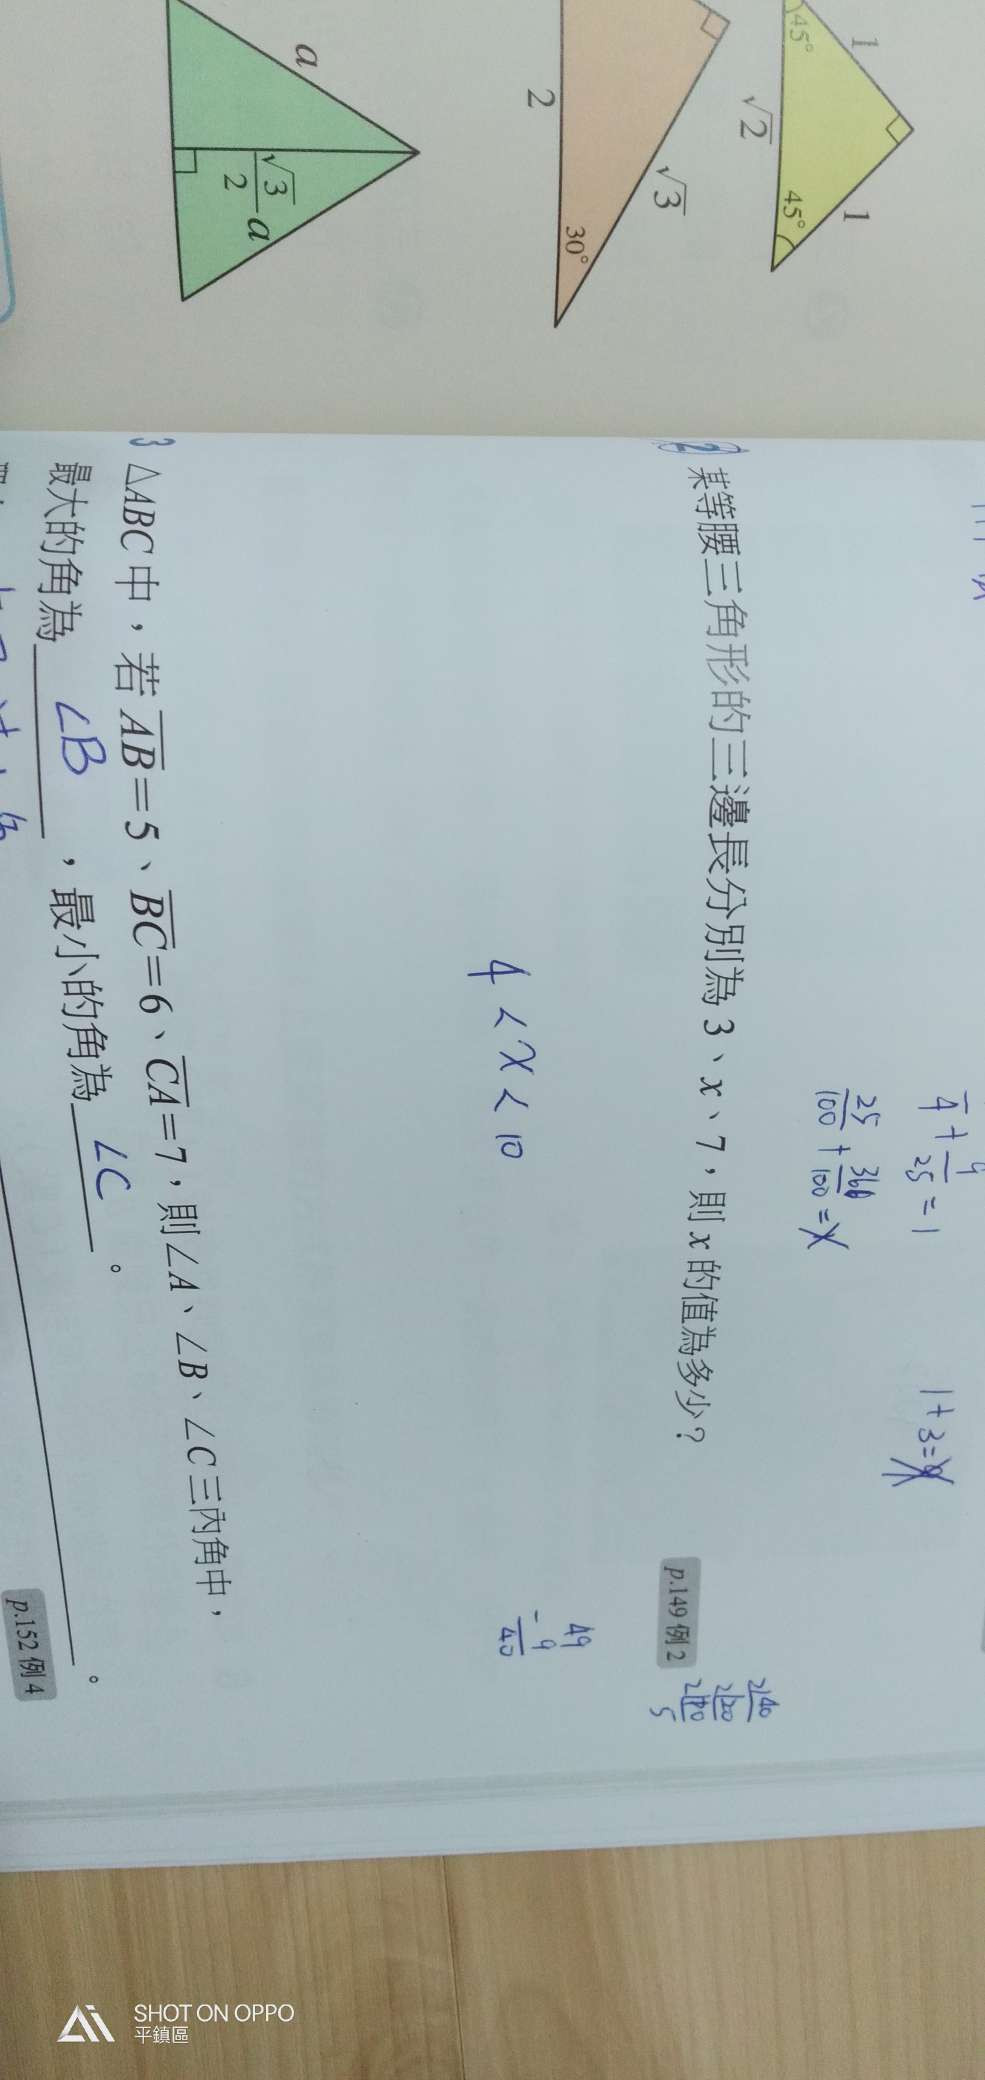 1
1
45°
45°
√2
√3
2
30°
a
√3/2 a
4/25 = 1
25/100 + 366/100 = X
1+3=
2 某等腰三角形的三邊長分別為 3、x、7,則 x 的值為多少?
p.149 例 2
2|40
2|20
2|10
5
4 < x < 10
49
- 9
40
3 △ABC 中,若 AB=5、BC=6、CA=7,則∠A、∠B、∠C 三內角中,
最大的角為 ∠B ,最小的角為 ∠C 。
。
p.152 例 4
SHOT ON OPPO
平鎮區